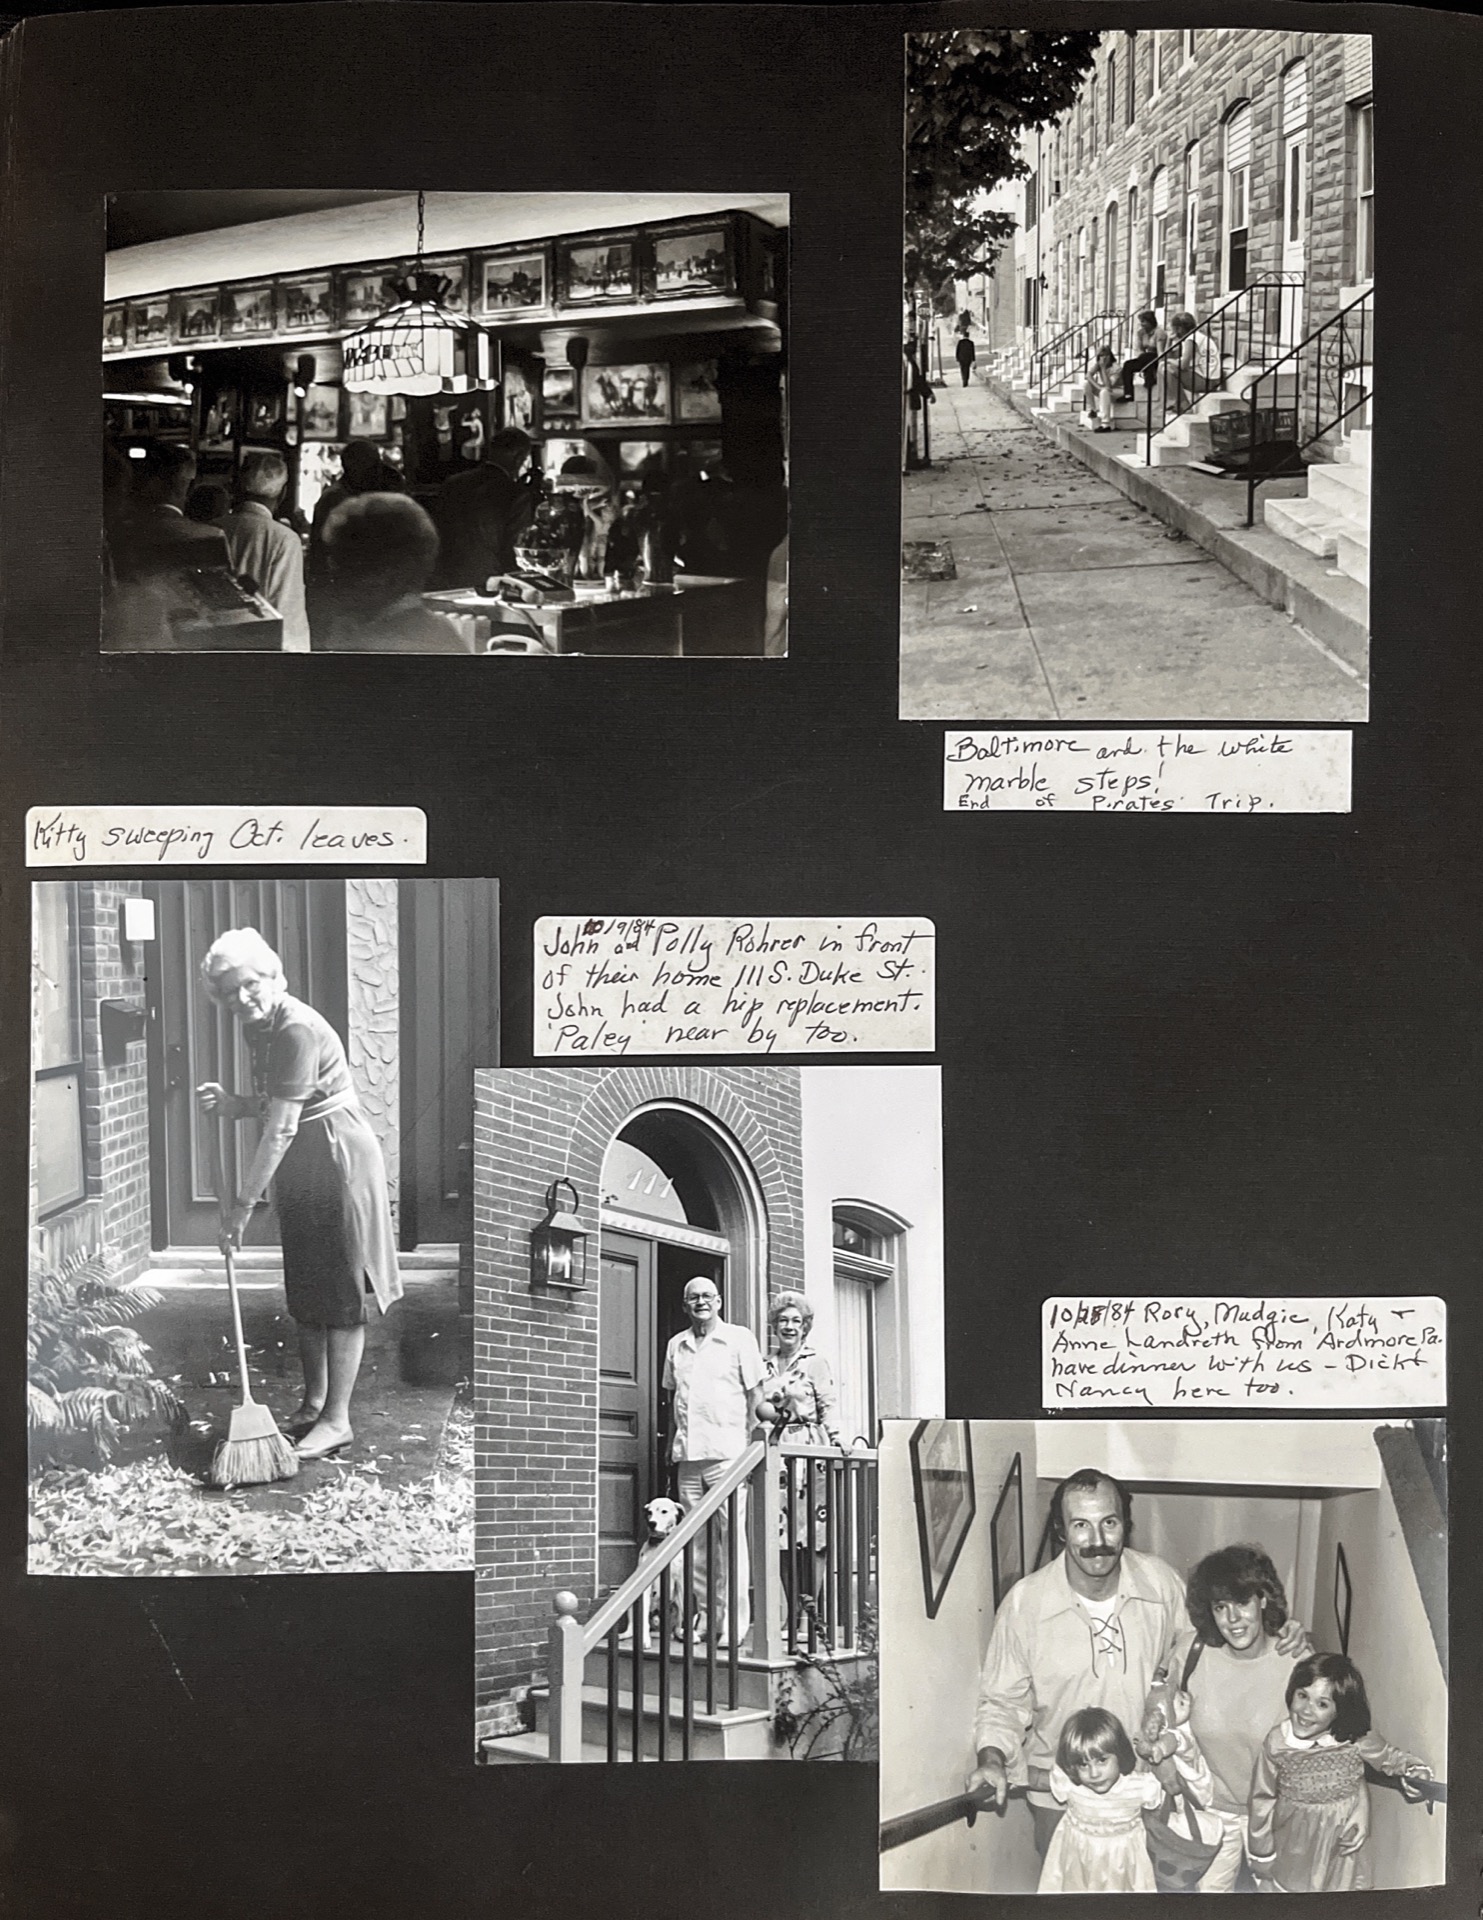 Baltimore and the white
marble steps!
End of Pirates' Trip.
Kitty sweeping Oct. leaves.
10/9/84
John and Polly Rohrer in front
of their home 111 S. Duke St.
John had a hip replacement.
'Paley' near by too.
111
10/28/84 Rory, Mudgie, Katy +
Anne Landreth from Ardmore, Pa.
have dinner with us - Dick +
Nancy here too.